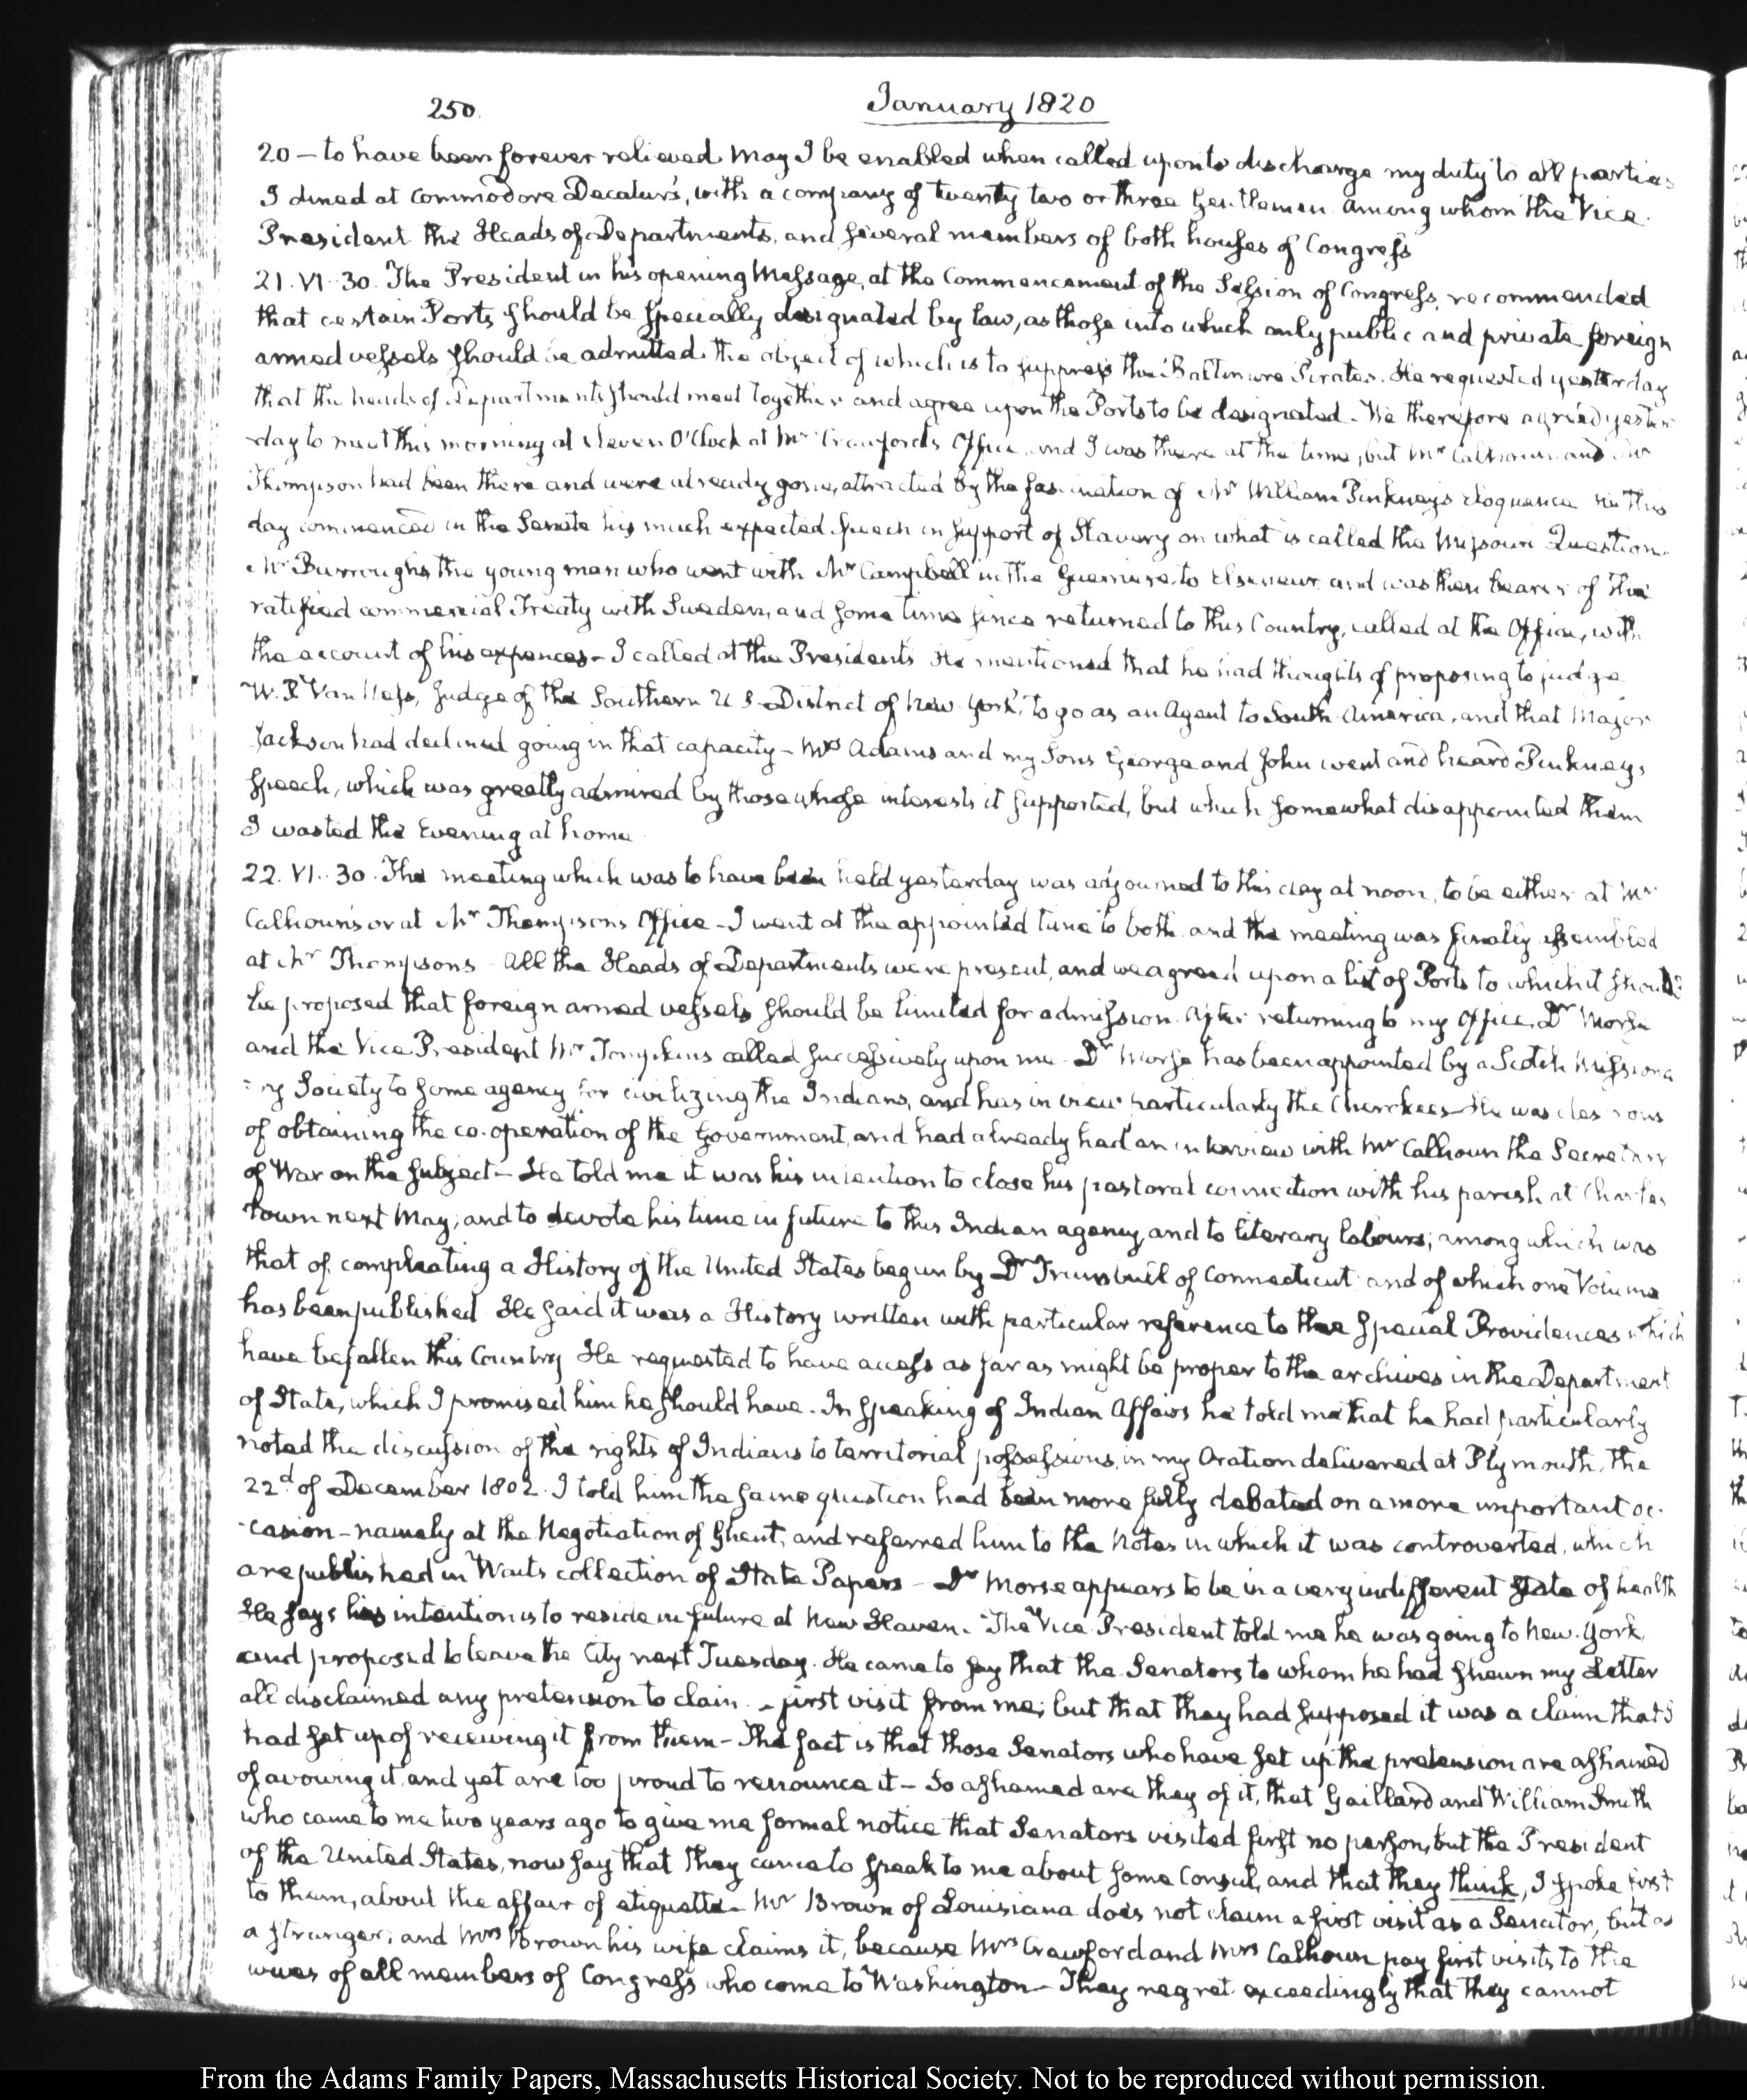 250.
January 1820
20 - to have been forever relieved. May I be enabled when called upon to discharge my duty to all parties
I dined at Commodore Decatur's, with a company of twenty two or three Gentlemen among whom the Vice-
President the Heads of Departments, and several members of both houses of Congress
21. VI. 30. The President in his opening Message, at the Commencement of the Session of Congress, recommended
that certain Ports should be specially designated by law, as those into which only public and private foreign
armed vessels should be admitted. the object of which is to suppress the Baltimore Pirates. He requested yesterday
that the heads of Departments should meet together and agree upon the Ports to be designated. We therefore agreed yester-
-day to meet this morning at eleven O'Clock at Mr Crawford's Office, and I was there at the time, but Mr Calhoun and Mr
Thompson had been there and were already gone, attracted by the fascination of Mr William Pinkney's eloquence who this
day commenced in the Senate his much expected Speech in support of Slavery on what is called the Missouri Question-
Mr Burroughs the young man who went with Mr Campbell in the Guerriere to Elseneur and was then bearer of the
ratified commercial Treaty with Sweden, and some time since returned to this Country, called at the Office, with
the account of his expences - I called at the Presidents He mentioned that he had thoughts of proposing to judge
W. P. Van Ness, Judge of the Southern U S. District of New York, to go as an Agent to South America, and that Major
Jackson had declined going in that capacity - Mrs Adams and my Sons George and John went and heard Pinkney's
Speech, which was greatly admired by those whose interests it supported, but which somewhat disappointed them
I wasted the Evening at home
22. VI. 30. The meeting which was to have been held yesterday was adjourned to this day at noon, to be either at Mr
Calhoun's or at Mr Thompson's Office - I went at the appointed time to both and the meeting was finally assembled
at Mr Thompsons - All the Heads of Departments were present, and we agreed upon a list of Ports to which it should
be proposed that foreign armed vessels should be limited for admission. After returning to my Office, Dr Morse
and the Vice-President Mr Tompkins called successively upon me. Dr Morse has been appointed by a Scotch Missiona
ry Society to some agency for civilizing the Indians, and has in view particularly the Cherokees - He was desirous
of obtaining the co-operation of the Government, and had already had an interview with Mr Calhoun the Secretary
of War on the subject - He told me it was his intention to close his pastoral connection with his parish at Charles
town next May, and to devote his time in future to this Indian agency, and to literary labours; among which was
that of compleating a History of the United States begun by Dr Trumbull of Connecticut and of which one Volume
has been published He said it was a History written with particular reference to the Special Providences which
have befallen this Country He requested to have access as far as might be proper to the archives in the Department
of State, which I promised him he should have. In speaking of Indian Affairs he told me that he had particularly
noted the discussion of the rights of Indians to territorial possessions, in my Oration delivered at Plymouth, the
22d of December 1802. I told him the same question had been more fully debated on a more important oc-
-casion - namely at the Negotiation of Ghent, and referred him to the Notes in which it was controverted, which
are published in Wait's collection of State Papers - Dr Morse appears to be in a very indifferent state of health
He says his intention is to reside in future at New Haven. The Vice-President told me he was going to New-York,
and proposed to leave the City next Tuesday. He came to say that the Senators to whom he had shewn my Letter
all disclaimed any pretension to claim a first visit from me; but that they had supposed it was a claim that I
had set up of receiving it from them - The fact is that those Senators who have set up the pretension are ashamed
of avowing it, and yet are too proud to renounce it - So ashamed are they of it, that Gaillard and William Smith
who came to me two years ago to give me formal notice that Senators visited first no person, but the President
of the United States, now say that they came to speak to me about some Consul, and that they think, I spoke first
to them, about the affair of etiquette - Mr Brown of Louisiana does not claim a first visit as a Senator, but as
a stranger; and Mrs Brown his wife claims it, because Mrs Crawford and Mrs Calhoun pay first visits to the
wives of all members of Congress who come to Washington - They regret exceedingly that they cannot
From the Adams Family Papers, Massachusetts Historical Society. Not to be reproduced without permission.